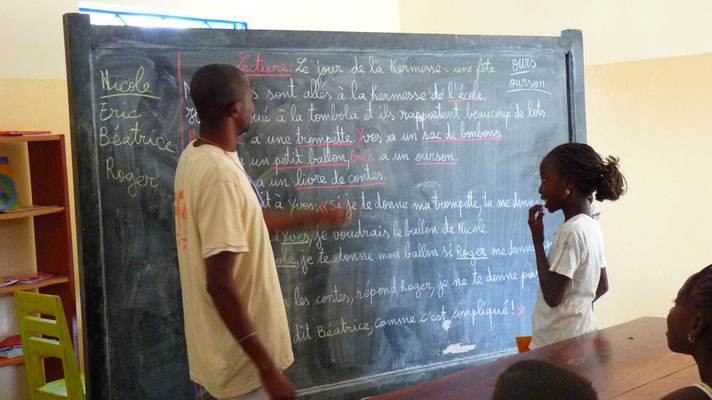 Nicole
Eric
Béatrice
Roger
Lecture: Le jour de la Kermesse = une fête
ours
ourson
N sont allés à la Kermesse de l'école.
à la tombola et ils rapportent beaucoup de lots.
a une trompette. Yves a un sac de bonbons.
a un petit ballon, Eric a un ourson.
a un livre de contes.
à Yves: « Si je te donne ma trompette, tu me donne
Yves, je voudrais le ballon de Nicole.
je te donne mon ballon si Roger me donne
les contes, répond Roger, je ne te donne pas
dit Béatrice, comme c'est compliqué! »